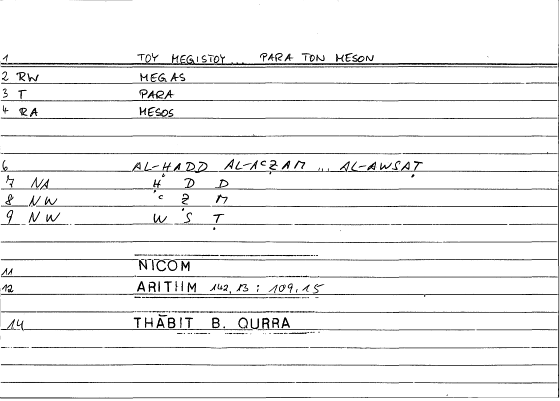 1 TOY MEGISTOY ... PARA TON MESON
2 RW MEGAS
3 T PARA
4 RA MESOS
6 AL-ḤADD AL-AʿẒAM ... AL-AWSAṬ
7 NA Ḥ D D
8 NW ʿ Ẓ M
9 NW W S Ṭ
11 NICOM
12 ARITHM 142,13 : 109,15
14 THĀBIT B. QURRA